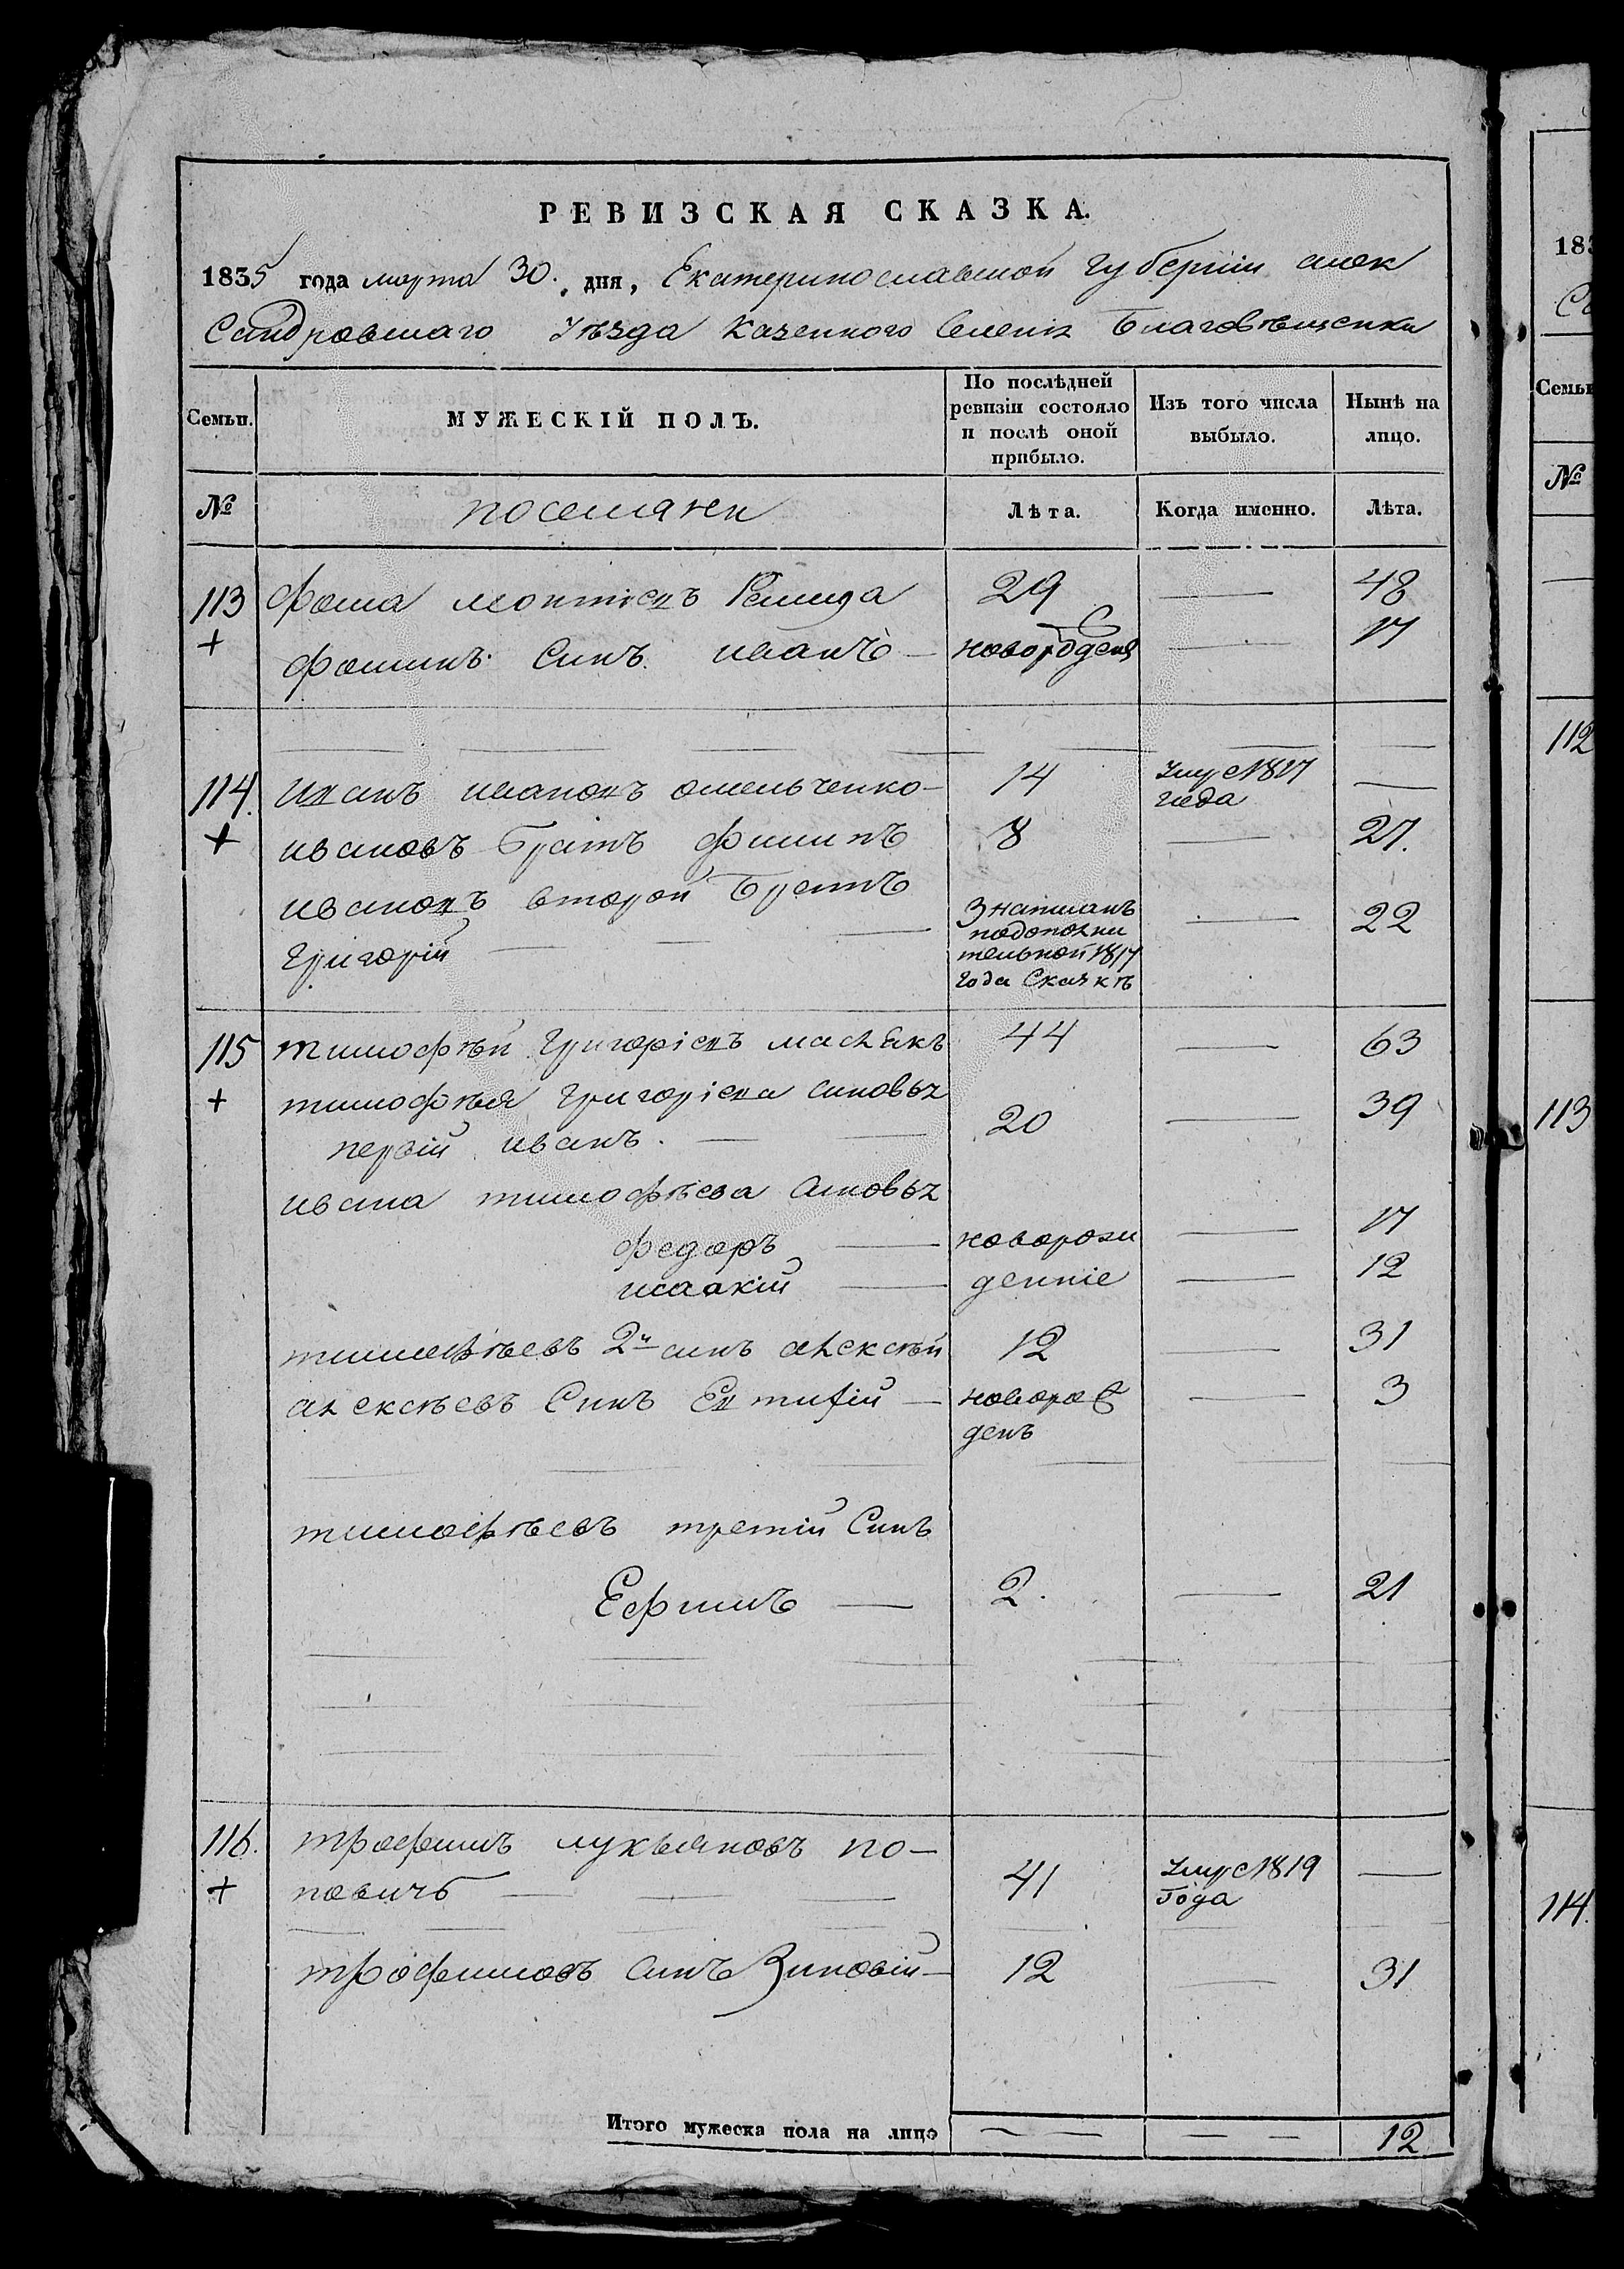 РЕВИЗСКАЯ СКАЗКА.
1835 года марта 30. дня, Екатеринославской губернии алек
Сандровскаго Уѣзда Казенного Селенія Благовѣщенки
Семьи. МУЖЕСКІЙ ПОЛЪ. По послѣдней ревизіи состояло и послѣ оной прибыло. Изъ того числа выбыло. Нынѣ на лицо.
№ поселяне Лѣта. Когда именно. Лѣта.
113 фома леонтіевъ 29 — 48
+ фоминъ Синъ иванъ — новорожденъ — 17
114. иванъ ивановъ омельченко — 14 умре 1817 года —
+ ивановъ братъ филипъ 8 — 27.
ивановъ второй братъ
григорій — 3 написанъ — 22
подополни
тельной 1817
года Сказкѣ
115 тимофѣй григоріевъ маслѣкъ 44 — 63
+ тимофѣя григоріева синовья
первій иванъ. — 20 — 39
ивана тимофѣева синовья
федоръ — новорож — 17
исаакій — денніе — 12
тимофѣевъ 2й синъ алексѣй 12 — 31
алексѣевъ Синъ Евтифій — новорож — 3
денъ
тимофѣевъ третій Синъ
Ефимъ — 2. — 21
116. трофимъ лукьяновъ по-
+ повичъ — 41 умре 1819 года —
трофимовъ синъ Зиновій — 12 — 31
Итого мужеска пола на лицо — — — — 12
183
Семьи
№
112
113
114.